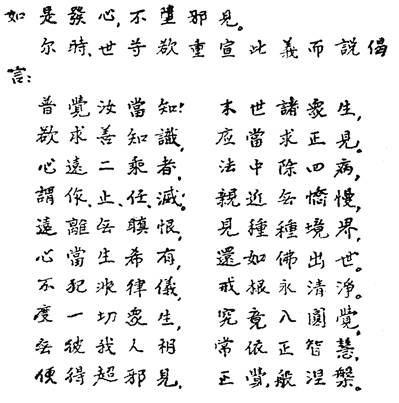 如是發心,不墮邪見。
尔時,世尊欲重宣此義而說偈
言:
普覺汝當知! 末世諸衆生,
欲求善知識, 应當求正見。
心遠二乘者, 法中除四病,
謂作、止、任、滅。 親近无憍慢,
遠離无瞋恨, 見種種境界,
心當生希有, 還如佛出世。
不犯非律儀, 戒根永清淨。
度一切衆生, 究竟入圓覺。
无彼我人相, 常依正智慧。
便得超邪見, 正覺,般涅槃。